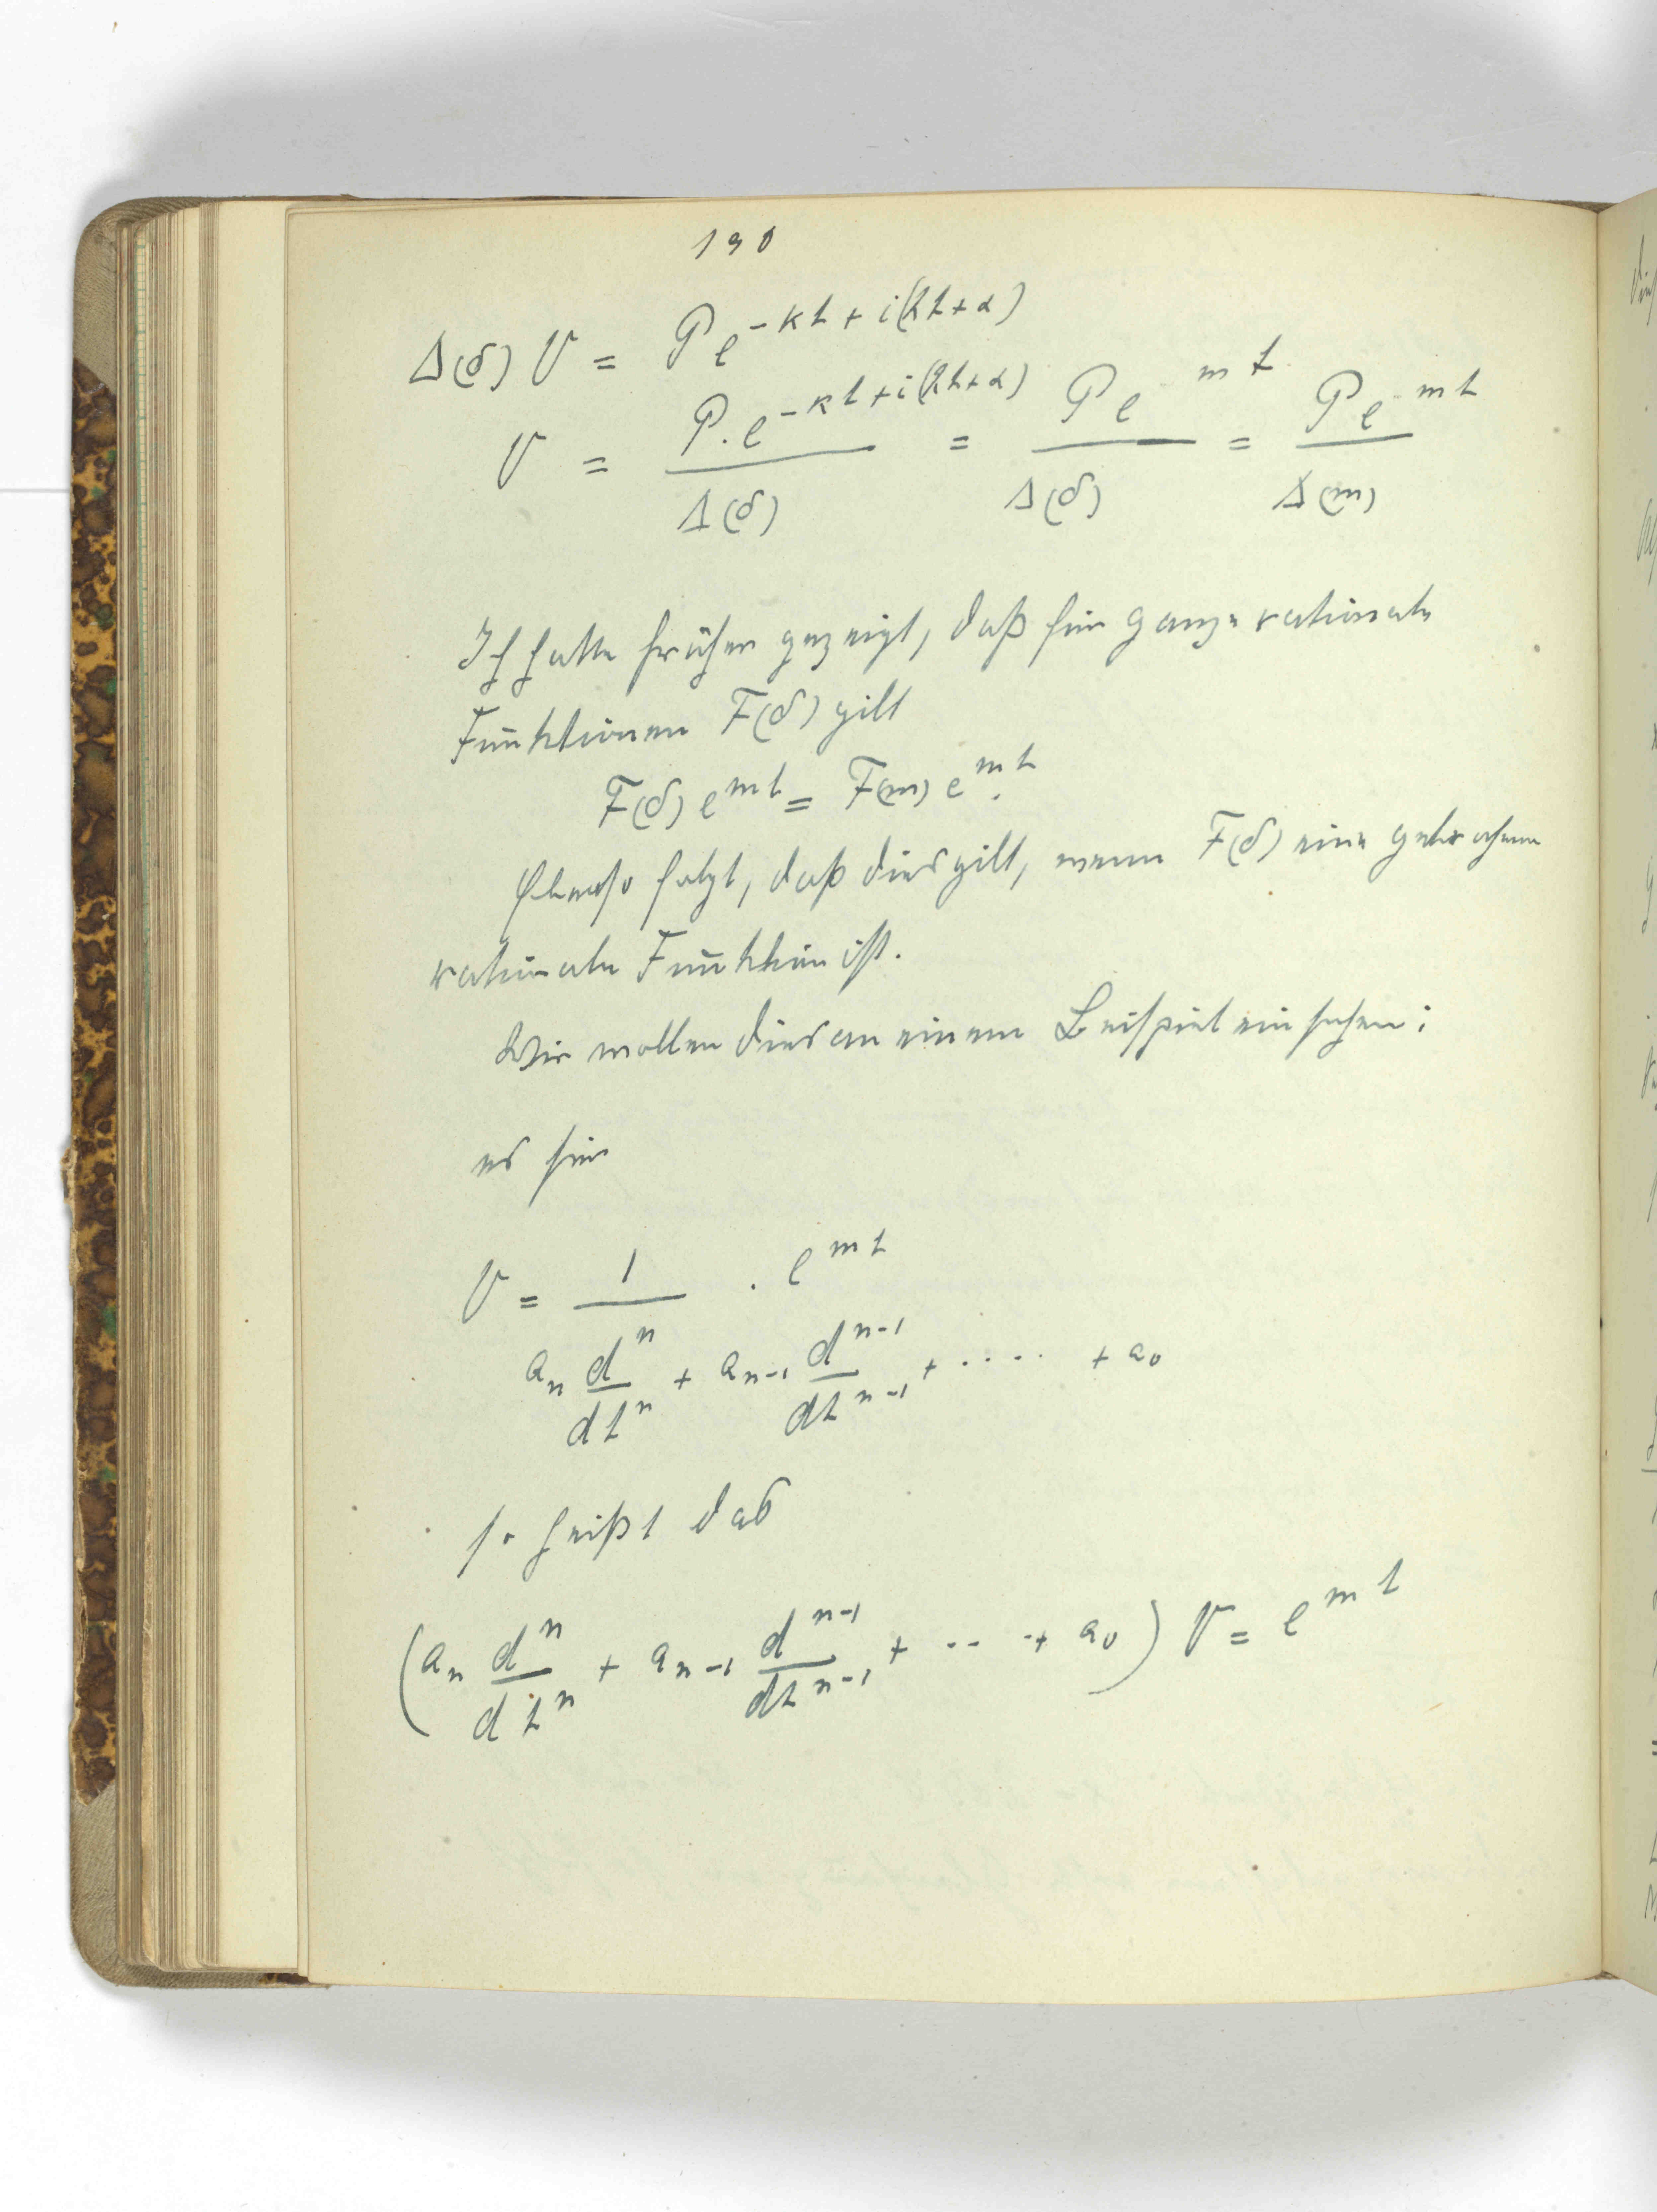 190
Δ(δ) V = P e^{-κt + i(λt+α)}
V = P·e^{-κt + i(λt+α)} / Δ(δ) = P e^{mt} / Δ(δ) = P e^{mt} / Δ(m)
Ich hatte früher gezeigt, daß für ganze rationale
Funktionen F(δ) gilt
F(δ) e^{mt} = F(m) e^{mt}.
Ebenso folgt, daß dies gilt, wenn F(δ) eine gebrochene
rationale Funktion ist.
Wir wollen dies an einem Beispiel einsehen:
es sei
V = 1 / (a_n d^n/dt^n + a_{n-1} d^{n-1}/dt^{n-1} + ···· + a_0) · e^{mt}
so heißt das
(a_n d^n/dt^n + a_{n-1} d^{n-1}/dt^{n-1} + ·· + a_0) V = e^{mt}